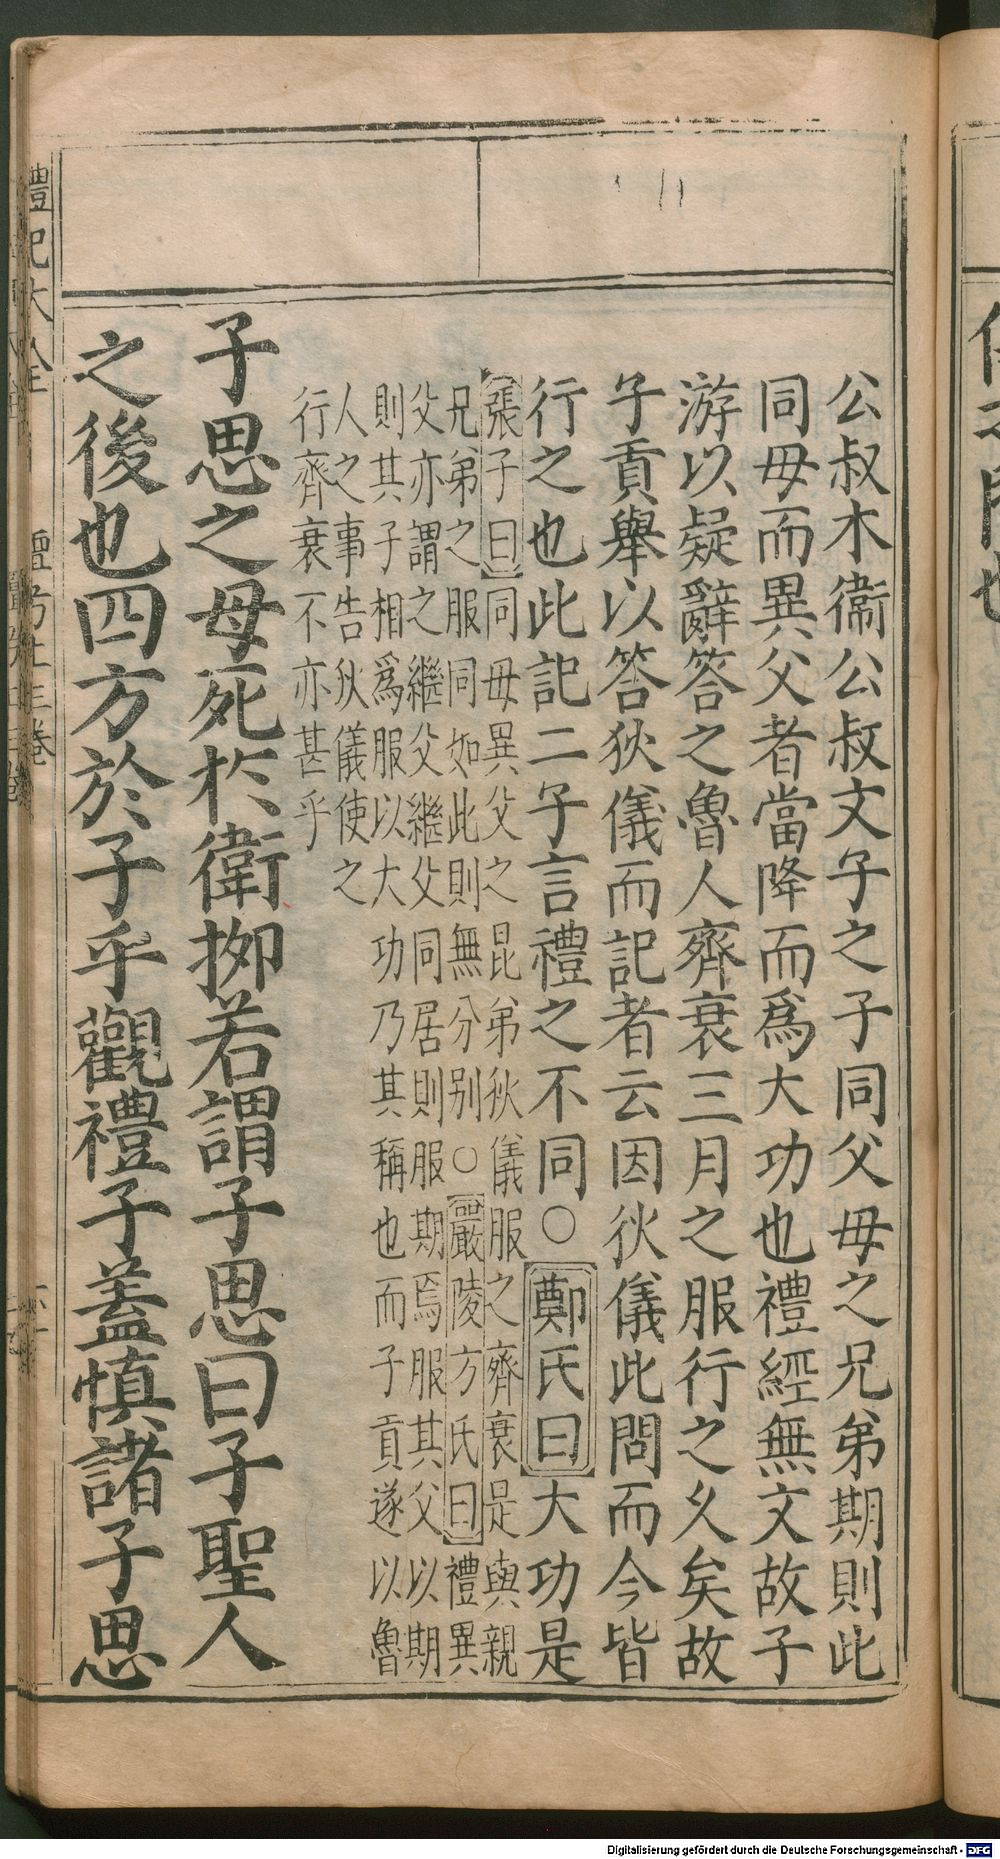 公叔木衞公叔文子之子同父母之兄弟期則此
同母而異父者當降而爲大功也禮經無文故子
游以疑辭答之魯人齊衰三月之服行之久矣故
子貢舉以答狄儀而記者云因狄儀此問而今皆
行之也此記二子言禮之不同○鄭氏曰大功是
張子曰同母異父之昆弟狄儀服之齊衰是與親
兄弟之服同如此則無分别○嚴陵方氏曰禮異
父亦謂之繼父繼父同居則服期焉服其父以期
則其子相爲服以大功乃其稱也而子貢遂以魯
人之事告狄儀使之
行齊衰不亦甚乎
子思之母死於衛柳若謂子思曰子聖人
之後也四方於子乎觀禮子蓋慎諸子思
禮記大全
檀弓上三卷
Digitalisierung gefördert durch die Deutsche Forschungsgemeinschaft - DFG